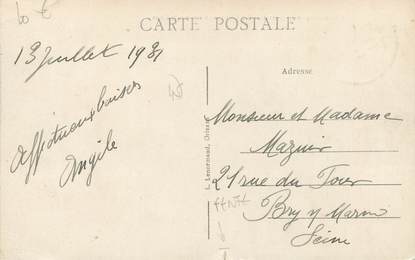 60 €
CARTE POSTALE
13 Juillet 1931
Affectueux baisers
Angèle
Adresse
Monsieur et Madame
Mazuir
21 rue du Four
Bry s/ Marne
Seine
L. Lenormand, Orléans